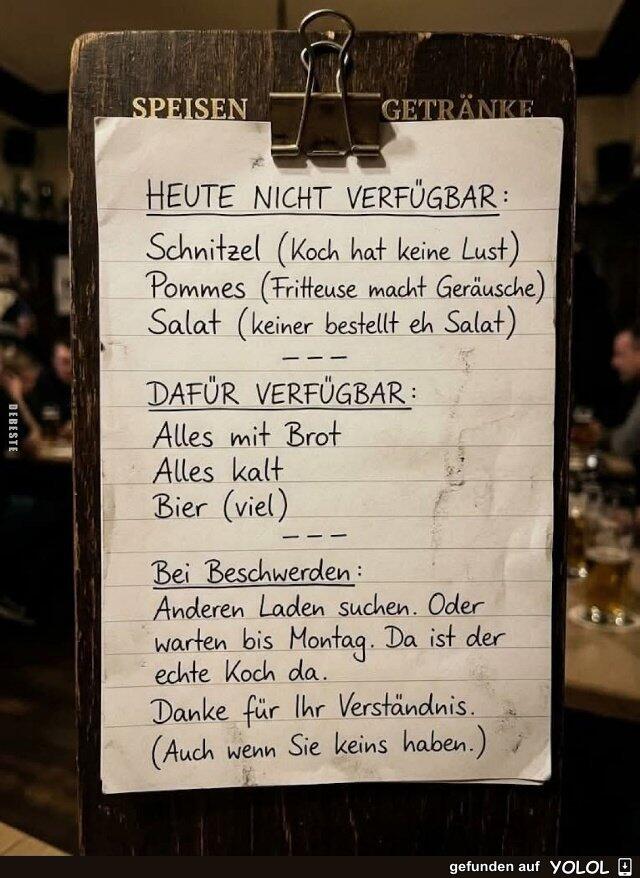 SPEISEN GETRÄNKE
HEUTE NICHT VERFÜGBAR:
Schnitzel (Koch hat keine Lust)
Pommes (Fritteuse macht Geräusche)
Salat (keiner bestellt eh Salat)
---
DAFÜR VERFÜGBAR:
Alles mit Brot
Alles kalt
Bier (viel)
---
Bei Beschwerden:
Anderen Laden suchen. Oder
warten bis Montag. Da ist der
echte Koch da.
Danke für Ihr Verständnis.
(Auch wenn Sie keins haben.)
DEBESTE
gefunden auf YOLOL